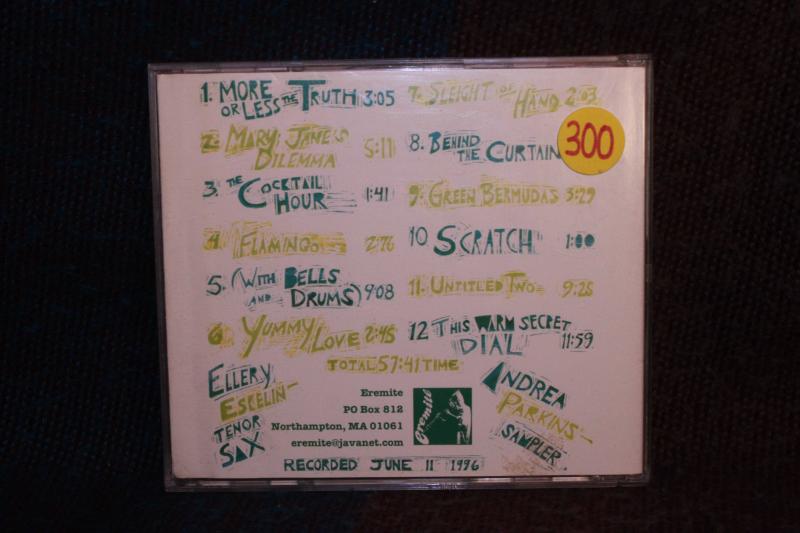 1. MORE OR LESS THE TRUTH 3:05
2. MARY JANE'S DILEMMA 5:11
3. THE COCKTAIL HOUR 1:41
4. FLAMINGO
5. (WITH BELLS AND DRUMS) 9:08
6. YUMMY LOVE 2:45
7. SLEIGHT OF HAND 2:03
8. BEHIND THE CURTAIN
300
9. GREEN BERMUDAS 3:29
10 SCRATCH 1:00
11. UNTITLED TWO 9:25
12 THIS WARM SECRET DIAL 11:59
TOTAL 57:41 TIME
ELLERY
ESKELIN
TENOR
SAX
Eremite
PO Box 812
Northampton, MA 01061
eremite@javanet.com
eremite
ANDREA
PARKINS
SAMPLER
RECORDED JUNE 11 1996